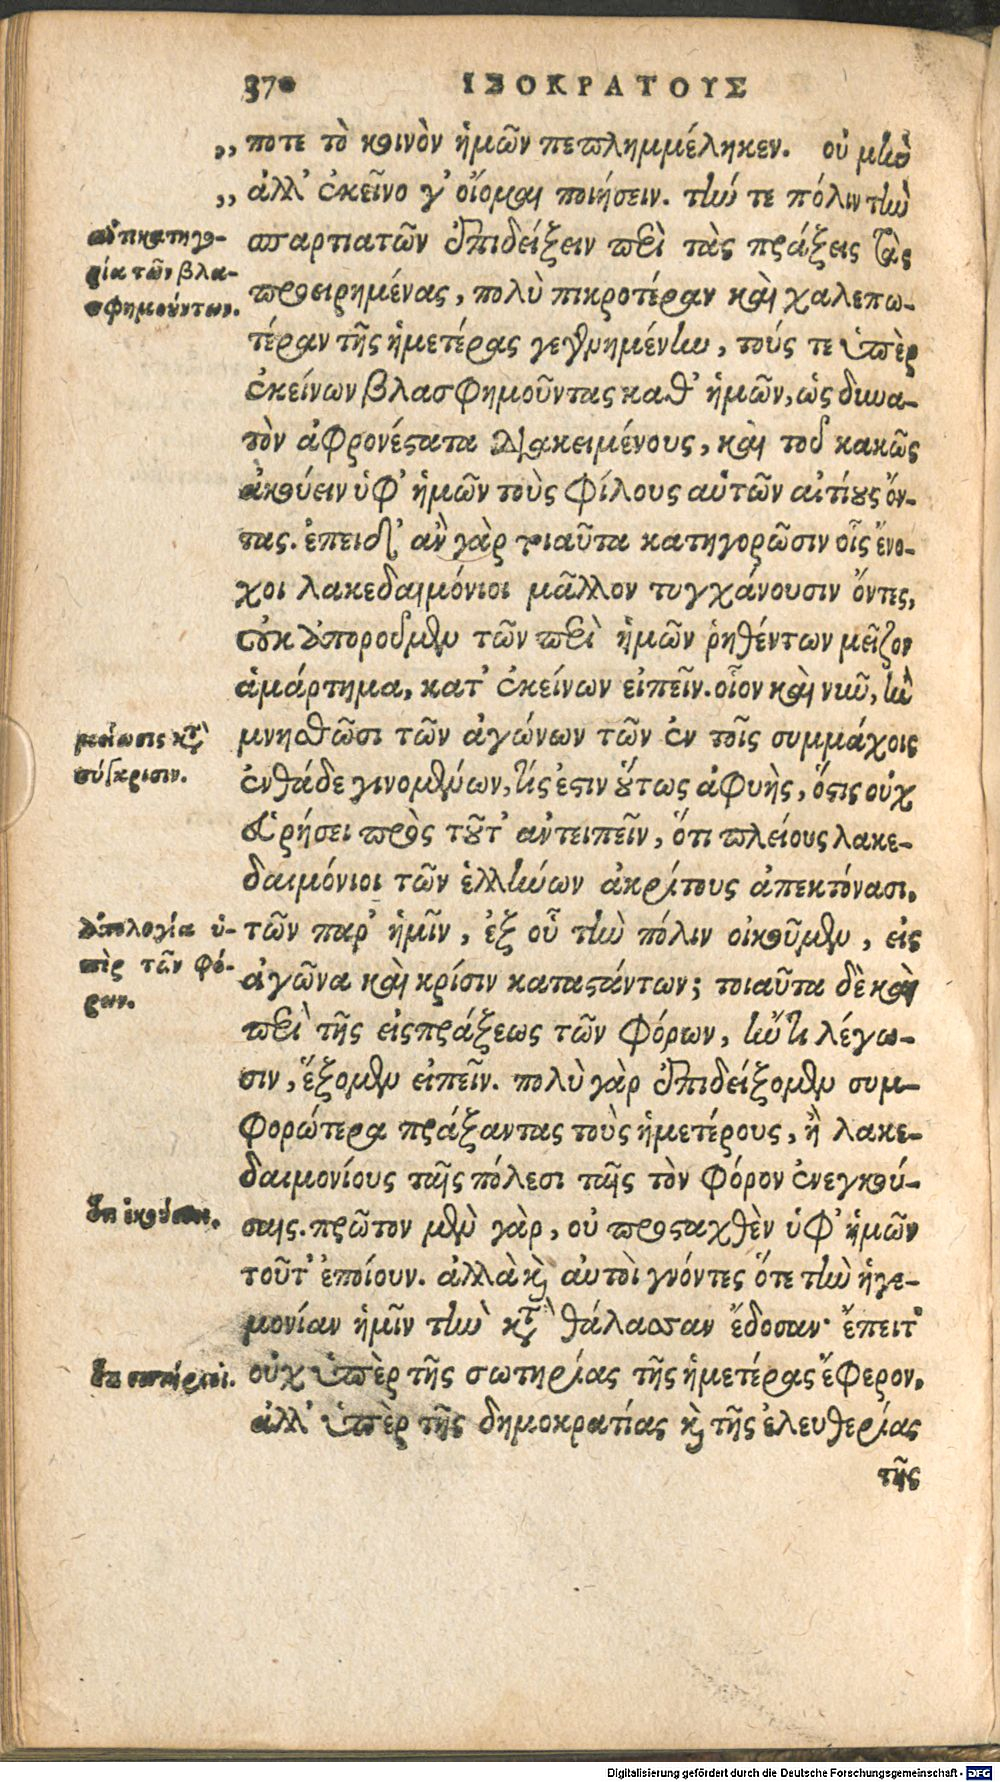 370 ΙΣΟΚΡΑΤΟΥΣ
„ ποτε τὸ κοινὸν ἡμῶν πεπλημμέληκεν. οὐ μὴν
„ ἀλλ' ἐκεῖνο γ' οἴομαι ποιήσειν. τήν τε πόλιν τὴν
σπαρτιατῶν ἐπιδείξειν περὶ τὰς πράξεις τὰς
προειρημένας, πολὺ πικροτέραν καὶ χαλεπω-
τέραν τῆς ἡμετέρας γεγενημένην, τούς τε ὑπὲρ
ἐκείνων βλασφημοῦντας καθ' ἡμῶν, ὡς δυνα-
τὸν ἀφρονέστατα διακειμένους, καὶ τοῦ κακῶς
ἀκούειν ὑφ' ἡμῶν τοὺς φίλους αὑτῶν αἰτίους ὄν-
τας. ἐπειδ' ἂν γὰρ τοιαῦτα κατηγορῶσιν οἷς ἔνο-
χοι λακεδαιμόνιοι μᾶλλον τυγχάνουσιν ὄντες,
οὐκ ἀποροῦμεν τῶν περὶ ἡμῶν ῥηθέντων μεῖζον
ἁμάρτημα, κατ' ἐκείνων εἰπεῖν. οἷον καὶ νῦν, ἢν
μνησθῶσι τῶν ἀγώνων τῶν ἐν τοῖς συμμάχοις
ἐνθάδε γινομένων, τίς ἐστιν οὕτως ἀφυὴς, ὅστις οὐχ
εὑρήσει πρὸς τοῦτ' ἀντειπεῖν, ὅτι πλείους λακε-
δαιμόνιοι τῶν ἑλλήνων ἀκρίτους ἀπεκτόνασι,
τῶν παρ' ἡμῖν, ἐξ οὗ τὴν πόλιν οἰκοῦμεν, εἰς
ἀγῶνα καὶ κρίσιν καταστάντων; τοιαῦτα δὲ καὶ
περὶ τῆς εἰσπράξεως τῶν φόρων, ἤν τι λέγω-
σιν, ἕξομεν εἰπεῖν. πολὺ γὰρ ἐπιδείξομεν συμ-
φορώτερα πράξαντας τοὺς ἡμετέρους, ἢ λακε-
δαιμονίους ταῖς πόλεσι ταῖς τὸν φόρον ἐνεγκού-
σαις. πρῶτον μὲν γὰρ, οὐ προσταχθὲν ὑφ' ἡμῶν
τοῦτ' ἐποίουν. ἀλλὰ καὶ αὐτοὶ γνόντες ὅτε τὴν ἡγε-
μονίαν ἡμῖν τὴν κατὰ θάλασσαν ἔδοσαν· ἔπειτ'
οὐχ ὑπὲρ τῆς σωτηρίας τῆς ἡμετέρας ἔφερον,
ἀλλ' ὑπὲρ τῆς δημοκρατίας καὶ τῆς ἐλευθερίας
τῆς
ἀντικατηγο-
ρία τῶν βλα-
σφημούντων.
μείωσις κατὰ
σύγκρισιν.
ἀπολογία ὑ-
πὲρ τῶν φό-
ρων.
ὅτι ἑκοῦσαι.
Digitalisierung gefördert durch die Deutsche Forschungsgemeinschaft - DFG